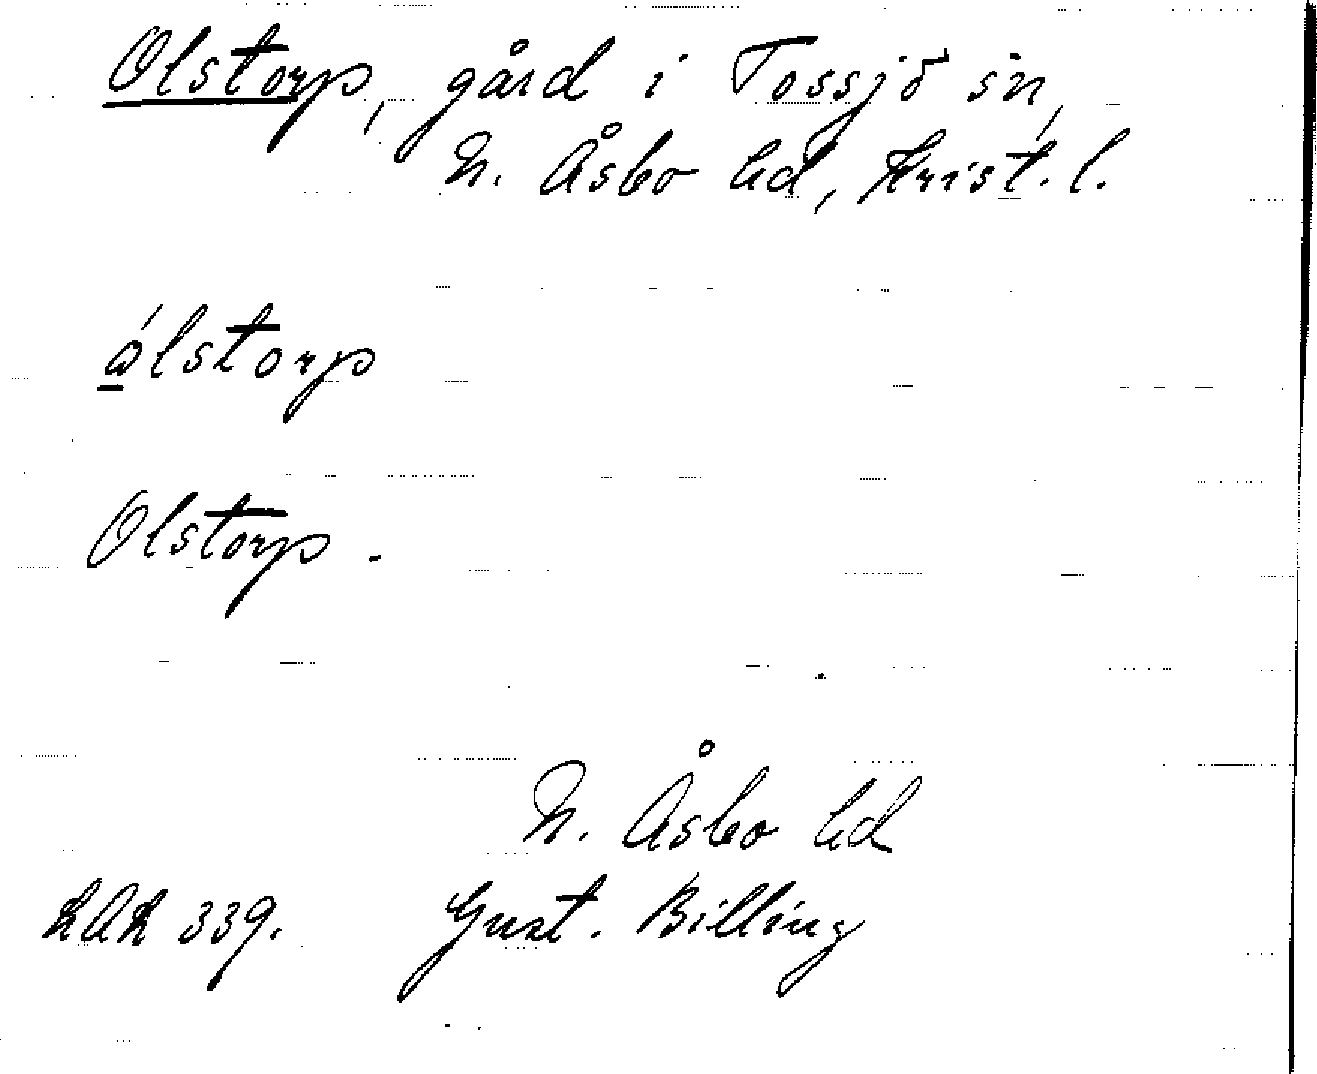 Olstorp, gård i Tossjö sn,
N. Åsbo hd, Krist. l.
ólstorp
Olstorp.
N. Åsbo hd
339. Gust. Billing